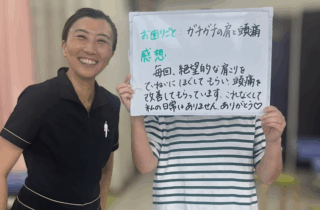 お困りごと ガチガチの肩と頭痛
感想
毎回、絶望的な肩こりを
ていねいにほぐしてもらい、頭痛を
改善してもらっています。これなくして
私の日常はありません。ありがとう♡